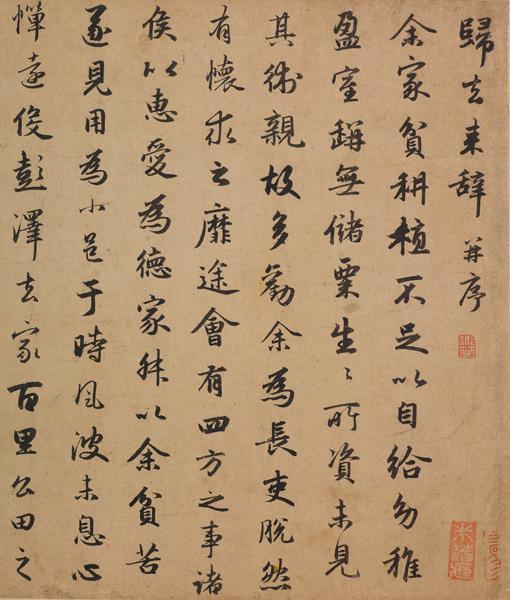 歸去来辞 并序
余家貧耕植不足以自給幼稚
盈室缾無儲粟生〻所資未見
其術親故多勸余為長吏脱然
有懷求之靡途會有四方之事諸
侯以惠愛為德家叔以余貧苦
遂見用為小邑于時風波未息心
憚遠役彭澤去家百里公田之